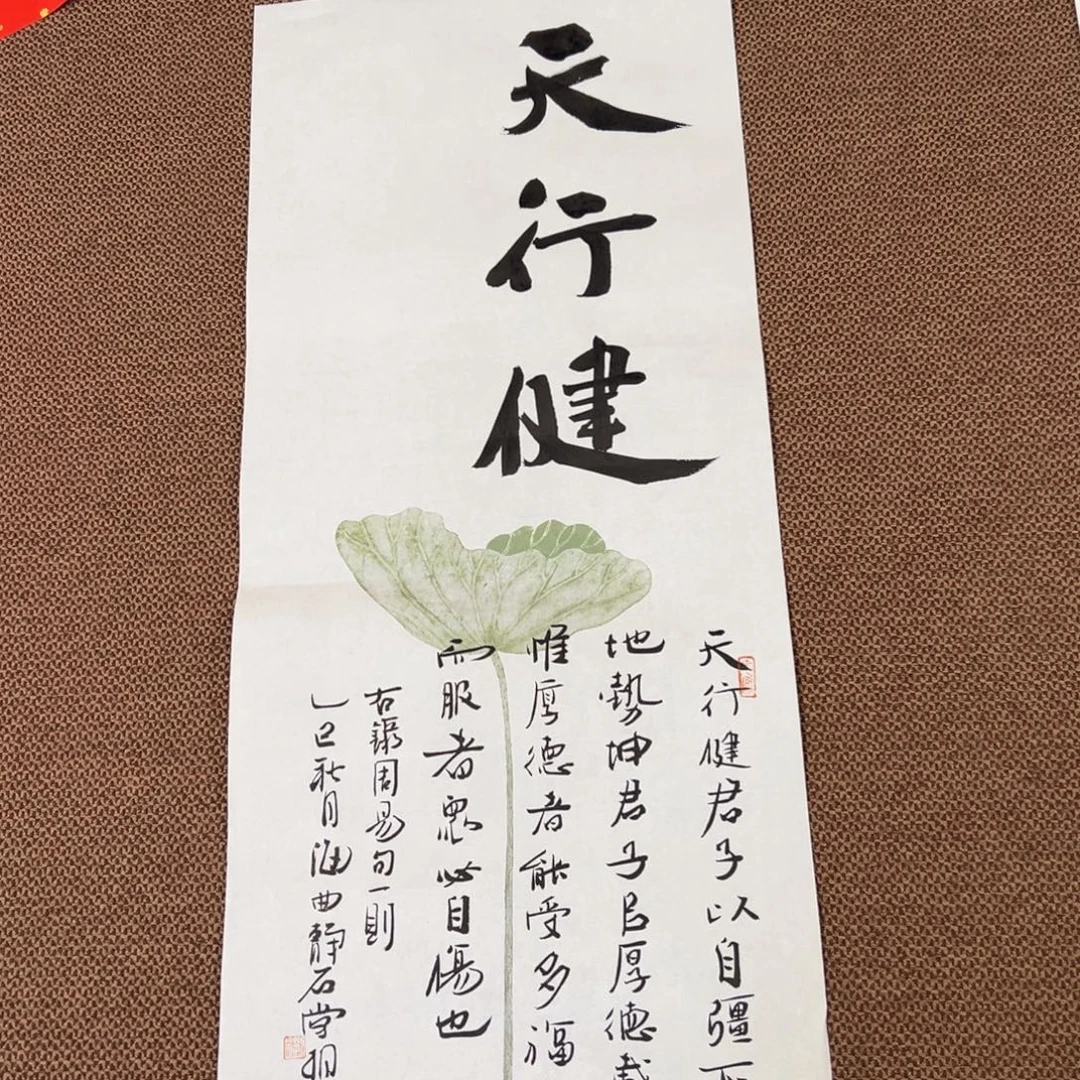 天行健
天行健君子以自彊不
地勢坤君子㠯厚德載
惟厚德者能受多福
而服者眾必自傷也
右錄周易句一則
乙巳秋月海曲靜石堂